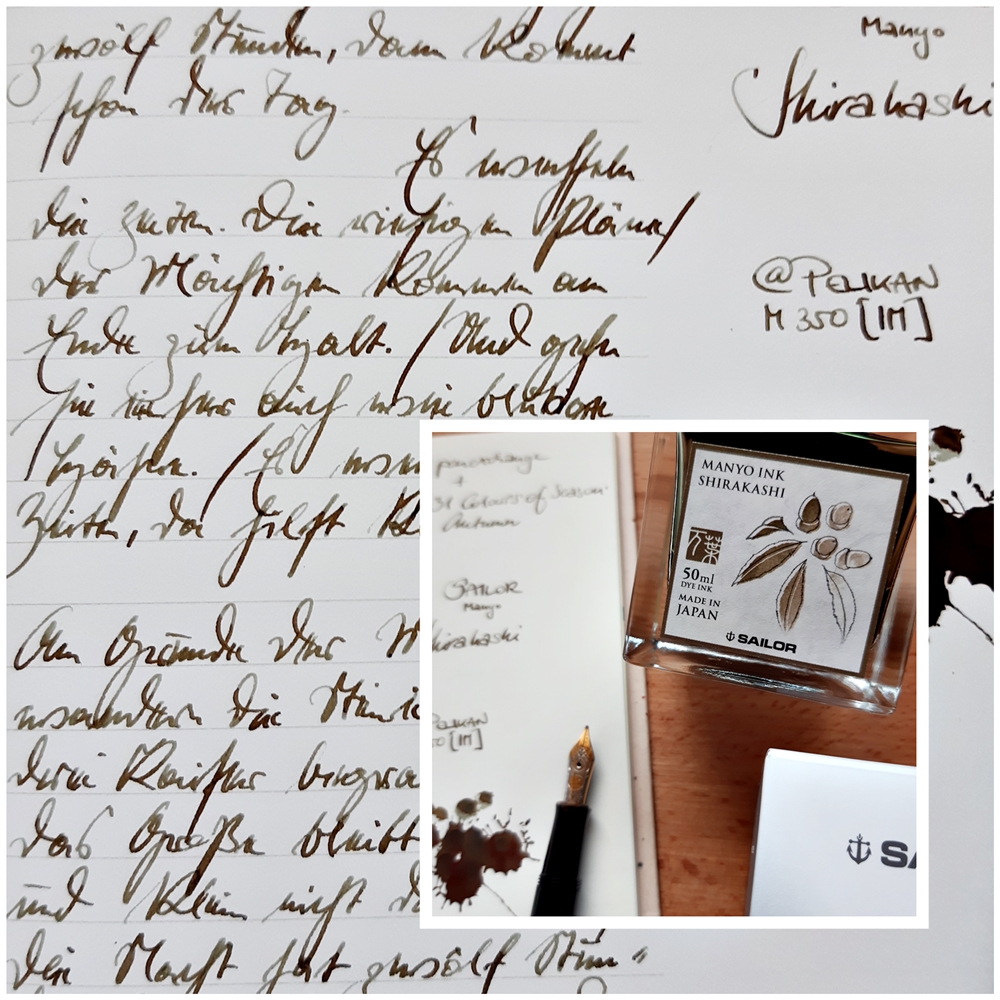 zwölf Stunden, dann kommt
schon der Tag.
Es wechseln
die Zeiten. Die riesigen Pläne/
der Mächtigen kommen am
Ende zum Halt. / Und gehn
sie einher auch wie blutige
Hähne. / Es
Zeiten, da hilft
Am Grunde der M
wandern die
drei Kaiser begra
das Große bleibt
und klein nicht
die Nacht hat zwölf Stun"
Manyo
Shirakashi
@PELIKAN
M 350 [IM]
+
31 Colours of Season
Autumn
SAILOR
Manyo
hirakashi
PELIKAN
50 [IM]
MANYO INK
SHIRAKASHI
万葉
50ml
DYE INK
MADE IN
JAPAN
SAILOR
SA